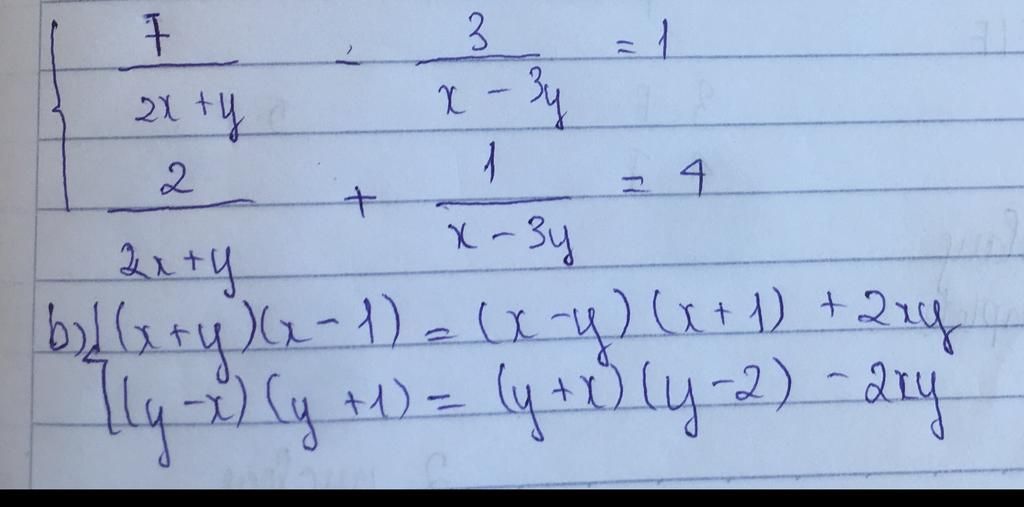 7/(2x+y) - 3/(x-3y) = 1
2/(2x+y) + 1/(x-3y) = 4
b) (x+y)(x-1) = (x-y)(x+1) + 2xy
(y-x)(y+1) = (y+x)(y-2) - 2xy